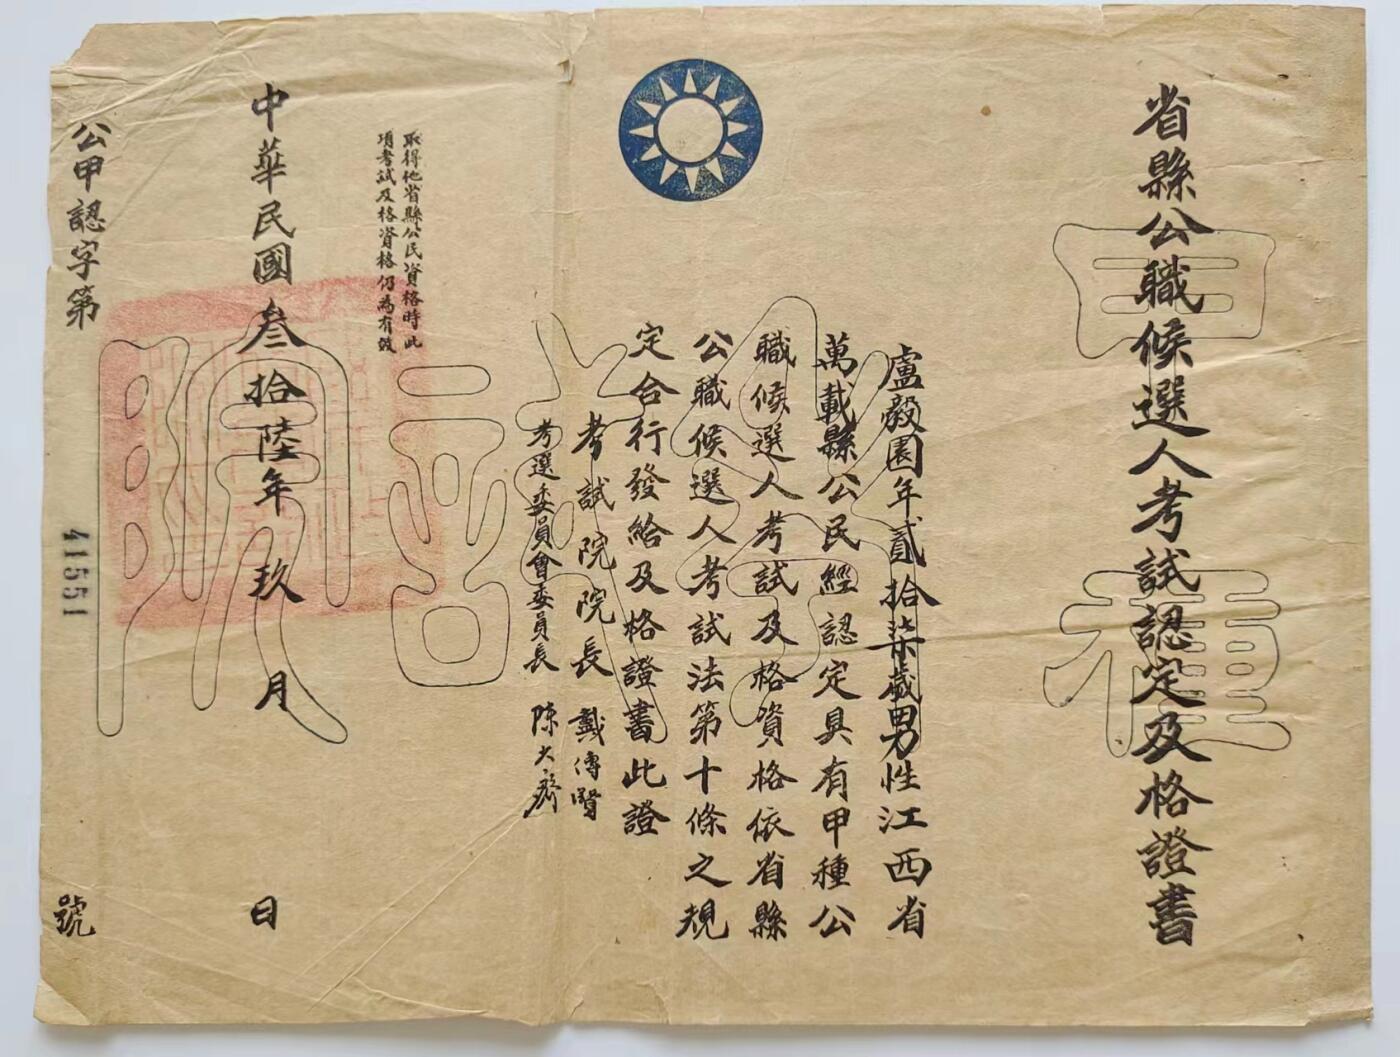 省縣公職候選人考試認定及格證書
盧毅園年貳拾柒歲男性江西省
萬載縣公民經認定具有甲種公
職候選人考試及格資格依省縣
公職候選人考試法第十條之規
定合行發給及格證書此證
考試院院長 戴傳賢
考選委員會委員長 陳大齊
取得他省縣公民資格時此
項考試及格資格仍為有效
中華民國叁拾陸年玖月 日
公甲認字第 41551 號
甲種